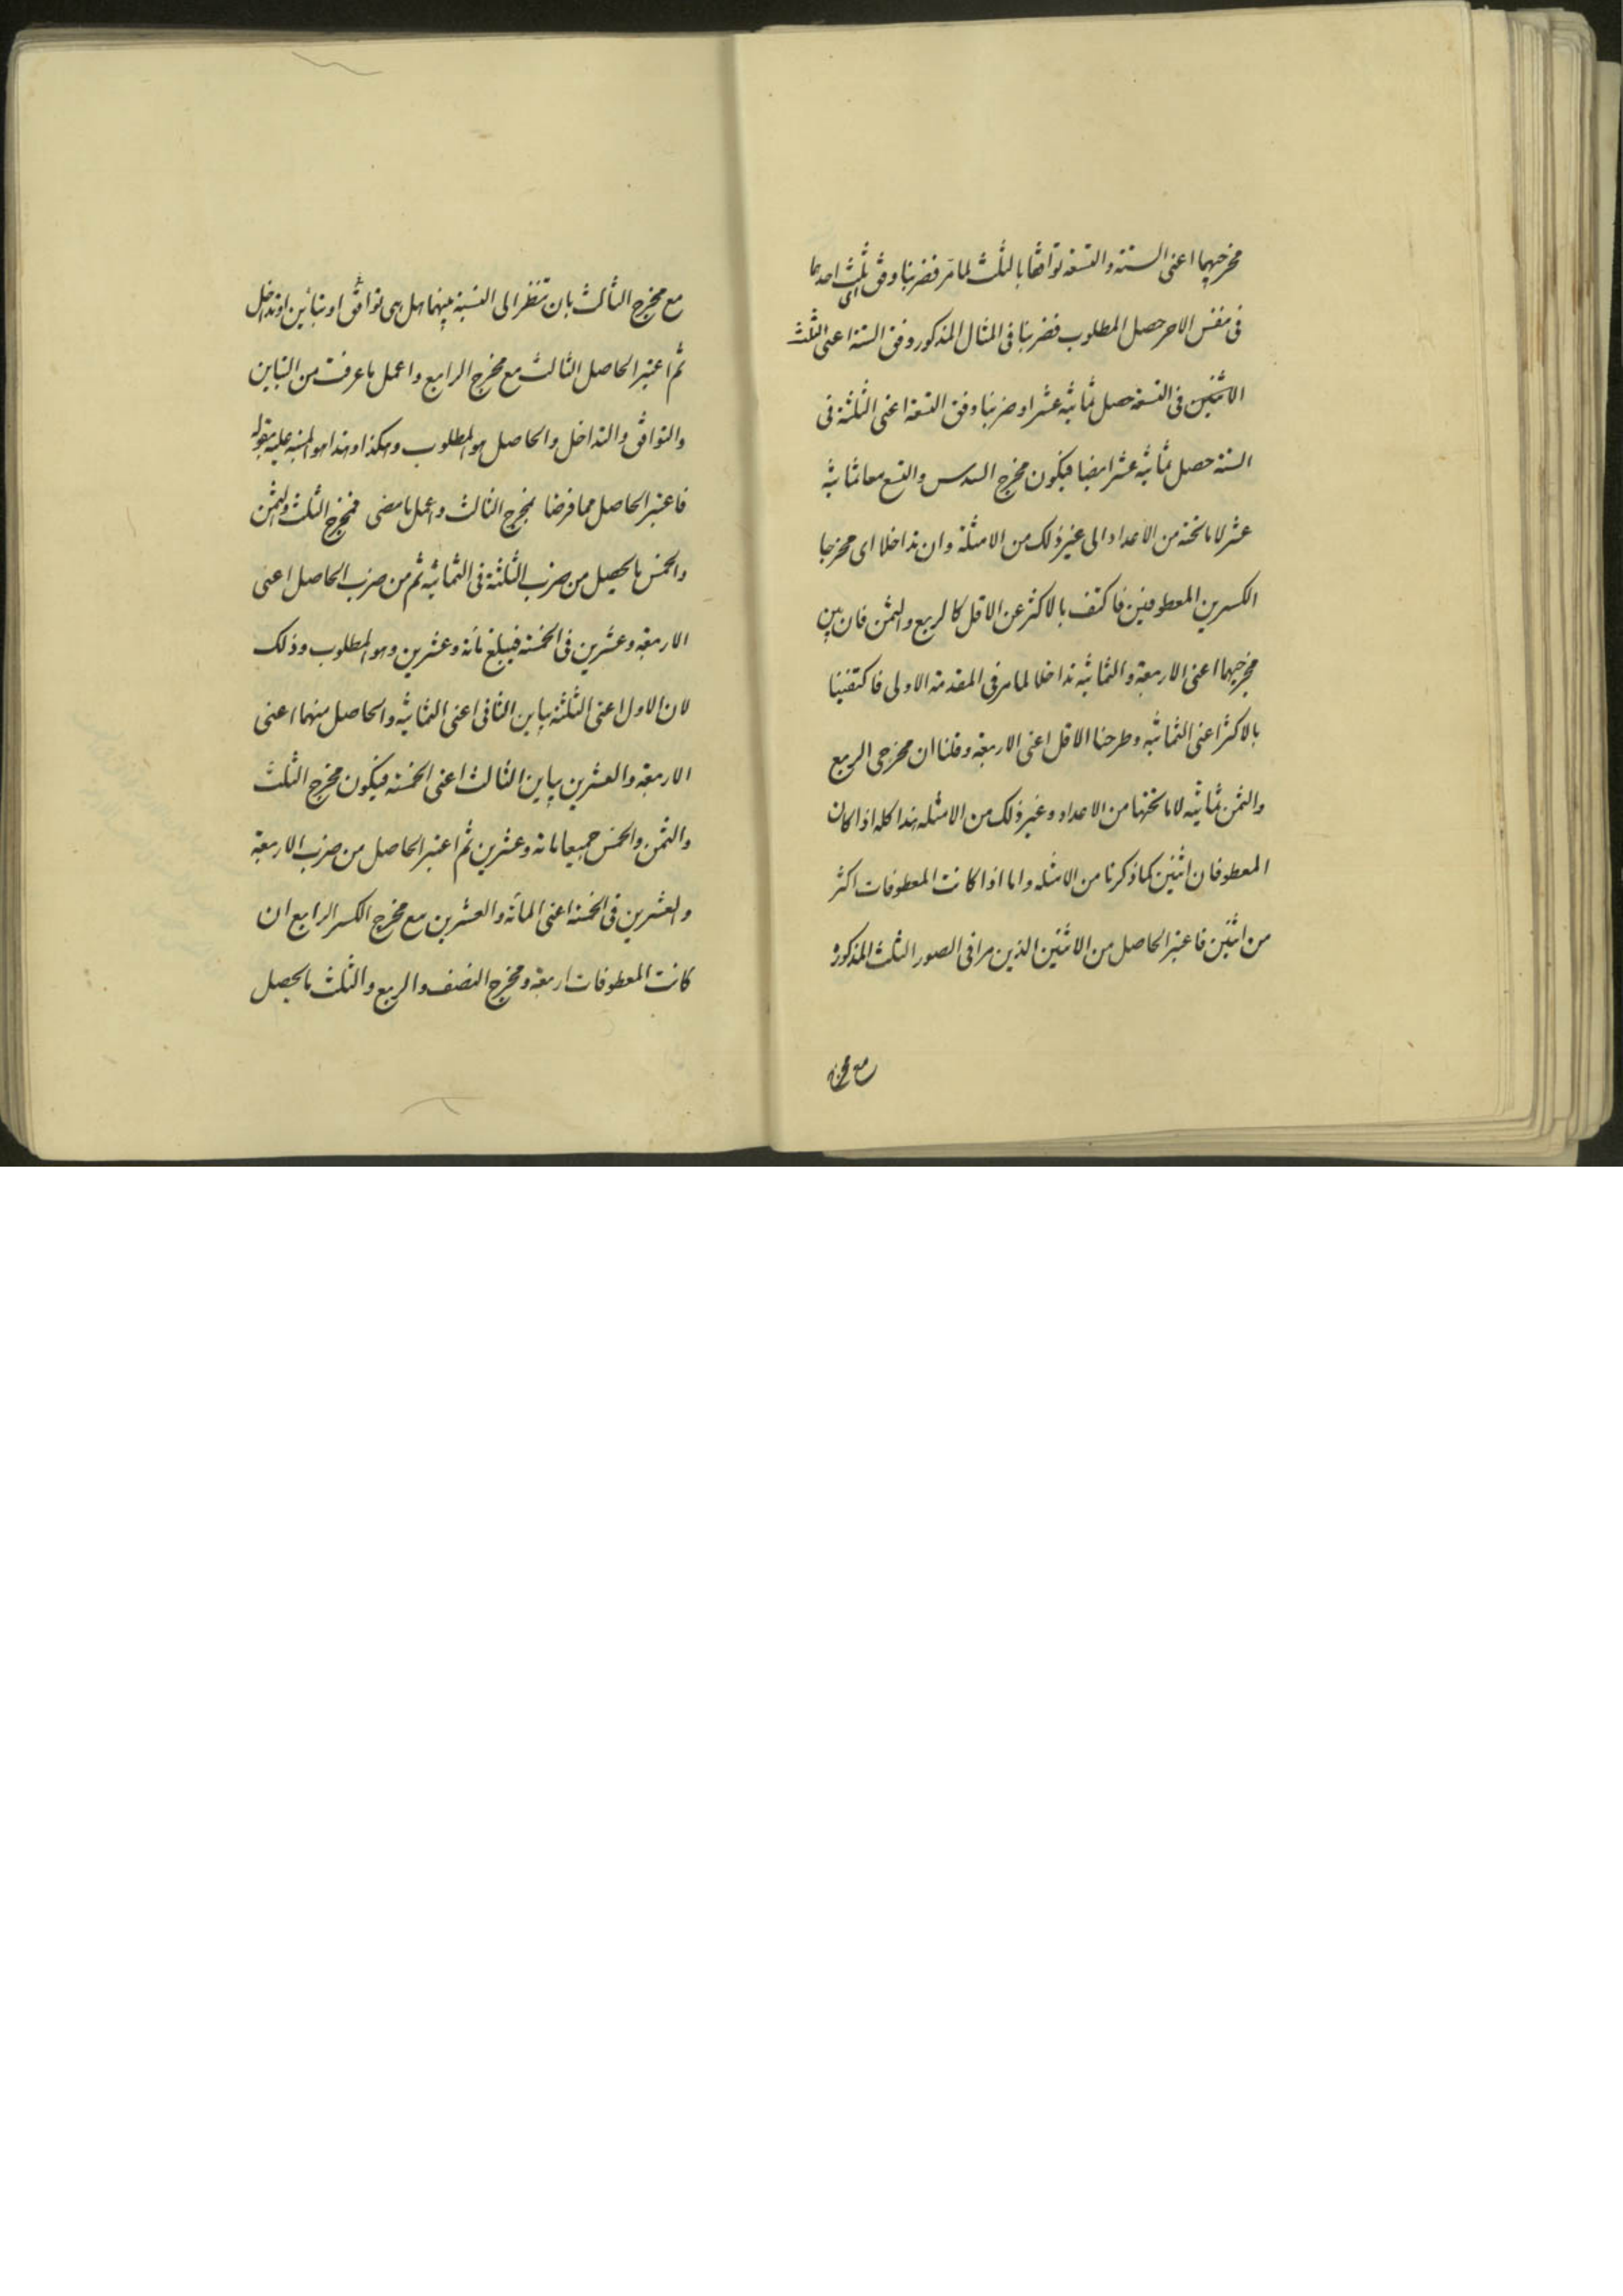 مخرجيهما اعنى الستة والتسعة توافقا بالثلث لما مر فضربنا وفق اى ثلث احدهما
فى نفس الاخر حصل المطلوب فضربنا فى المثال المذكور وفق الستة اعنى الثلث
الاثنين فى التسعة حصل ثمانية عشر او ضربنا وفق التسعة اعنى الثلثة فى
الستة حصل ثمانية عشر ايضا فيكون مخرج السدس والتسع معا ثمانية
عشر لا ما تحته من الاعداد الى غير ذلك من الامثلة وان تداخلا اى مخرجا
الكسرين المعطوفين فاكتف بالاكثر عن الاقل كالربع والثمن فان بين
مخرجيهما اعنى الاربعة والثمانية تداخلا لما مر فى المقدمة الاولى فاكتفينا
بالاكثر اعنى الثمانية وطرحنا الاقل اعنى الاربعة وقلنا ان مخرجى الربع
والثمن ثمانية لا ما تحتها من الاعداد وغير ذلك من الامثله هذا كله اذا كان
المعطوفان اثنين كما ذكرنا من الامثله واما اذا كانت المعطوفات اكثر
من اثنين فاعتبر الحاصل من الاثنين الذين مرا فى الصور الثلث المذكورة
مع مخرج
مع مخرج الثالث بان تنظر الى النسبة بينهما هل هى توافق او تباين او تداخل
ثم اعتبر الحاصل الثالث مع مخرج الرابع واعمل ما عرفت من التباين
والتوافق والتداخل والحاصل هو المطلوب وهكذا وهذا هو المنبه عليه بقوله
فاعتبر الحاصل مما فرضا بمخرج الثالث واعمل ما مضى فمخرج الثلث والثمن
والخمس ما يحصل من ضرب الثلثة فى الثمانية ثم من ضرب الحاصل اعنى
الاربعة وعشرين فى الخمسة فيبلغ مائة وعشرين وهو المطلوب وذلك
لان الاول اعنى الثلثة يباين الثانى اعنى الثمانية والحاصل منهما اعنى
الاربعة والعشرين يباين الثالث اعنى الخمسة فيكون مخرج الثلث
والثمن والخمس جميعا مائة وعشرين ثم اعتبر الحاصل من ضرب الاربعة
والعشرين فى الخمسة اعنى المائة والعشرين مع مخرج الكسر الرابع ان
كانت المعطوفات اربعة ومخرج النصف والربع والثلث ما يحصل